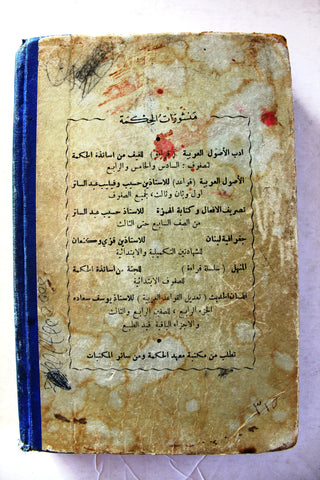 منشورات الحكمة
ادب الأصول العربية (قراءة) لفيف من اساتذة الحكمة
لصفوف: السادس والخامس والرابع
الأصول العربية (قواعد) للاستاذين حبيب وفيليب عبد الساتر
اول وثان وثالث، لجميع الصفوف
تصريف الافعال وكتابة الهمزة للاستاذ حبيب عبد الساتر
من الصف السابع حتى الثالث
جغرافية لبنان للاستاذين قزي وكنعان
لشهادتين التكميلية والابتدائية
المنهل (سلسلة قراءة) للجنة من اساتذة الحكمة
للصفوف الابتدائية
اللسان الحديث (تعديل القواعد العربية) للاستاذ يوسف سعاده
الجزء الرابع، للصفين الرابع والثالث
والاجزاء الباقية قيد الطبع
تطلب من مكتبة معهد الحكمة ومن سائر المكتبات